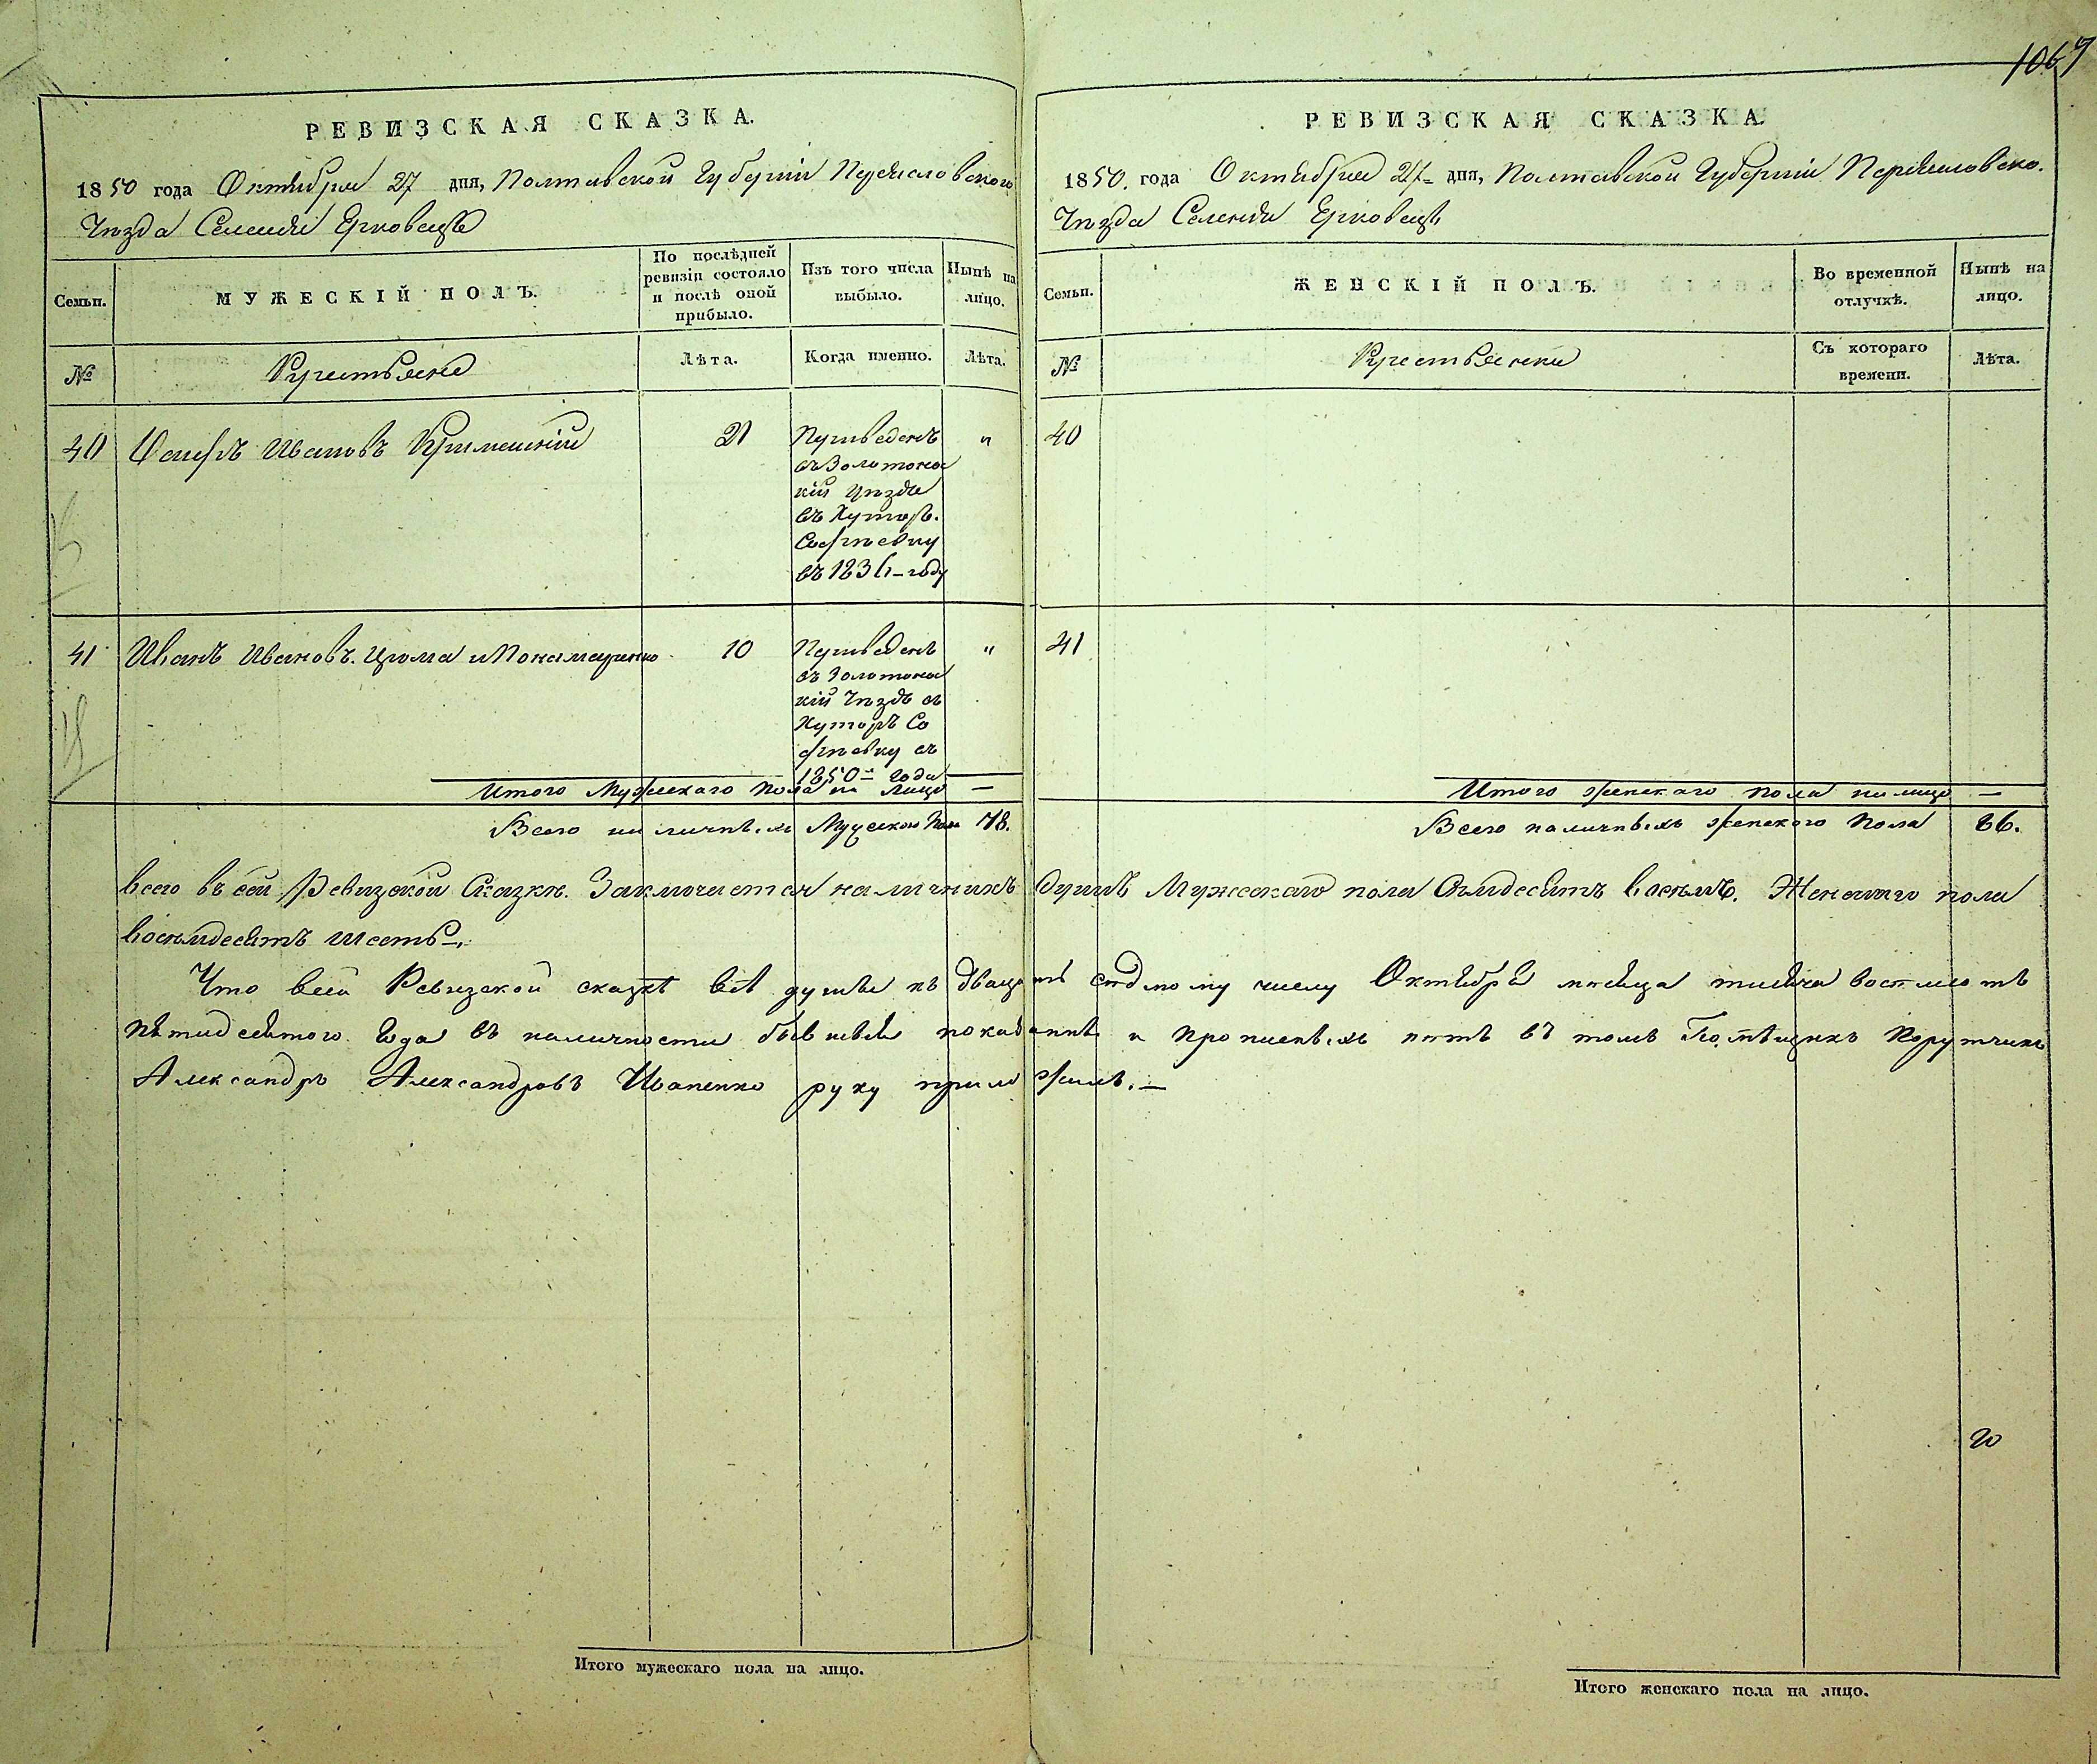 1067
РЕВИЗСКАЯ СКАЗКА.
1850 года Октября 27 дня, Полтавской Губерніи Переясловского
Уѣзда Селенія Ерковецъ
Семьи.
МУЖЕСКІЙ ПОЛЪ.
По послѣдней ревизіи состояло и послѣ оной прибыло.
Изъ того числа выбыло.
Нынѣ на лицо.
№
Крестьяне
Лѣта.
Когда именно.
Лѣта.
40
Иванов
21
Переведенъ
въ Золотонос
кій уѣздъ
въ Хуторъ
Софіевку
году
"
41
Иванъ Ивановъ Цюма и Понамаренко
10
Переведенъ
въ Золотонос
кій Уѣздъ въ
Хуторъ Со
фіевку въ
1850 года
"
Итого Мужескаго пола на лицо —
Всего наличныхъ Мужеского Пола 78.
РЕВИЗСКАЯ СКАЗКА.
1850. года Октября 27 дня, Полтавской Губерніи Переясловско.
Уѣзда Селенія Ерковецъ
Семьи.
ЖЕНСКІЙ ПОЛЪ.
Во временной отлучкѣ.
Нынѣ на лицо.
№
Крестьянки
Съ котораго времени.
Лѣта.
40
41
Итого женскаго пола на лицо —
Всего наличныхъ женского Пола 86.
всего въ сей Ревизской Сказкѣ Заключается наличнихъ душъ Мужескаго пола Семдесятъ восемъ. Женскаго пола
восемдесятъ шесть
Что всей Ревизской сказкѣ всѣ души къ двадцать седмому числу Октября мѣсяца тисяча восемсотъ
пятидесятого года въ наличности бывшія показанны и прописныхъ нетъ въ томъ Помѣщикъ Порутчикъ
Александръ Александровъ Иваненко руку приложилъ.—
20
Итого мужескаго пола на лицо.
Итого женскаго пола на лицо.